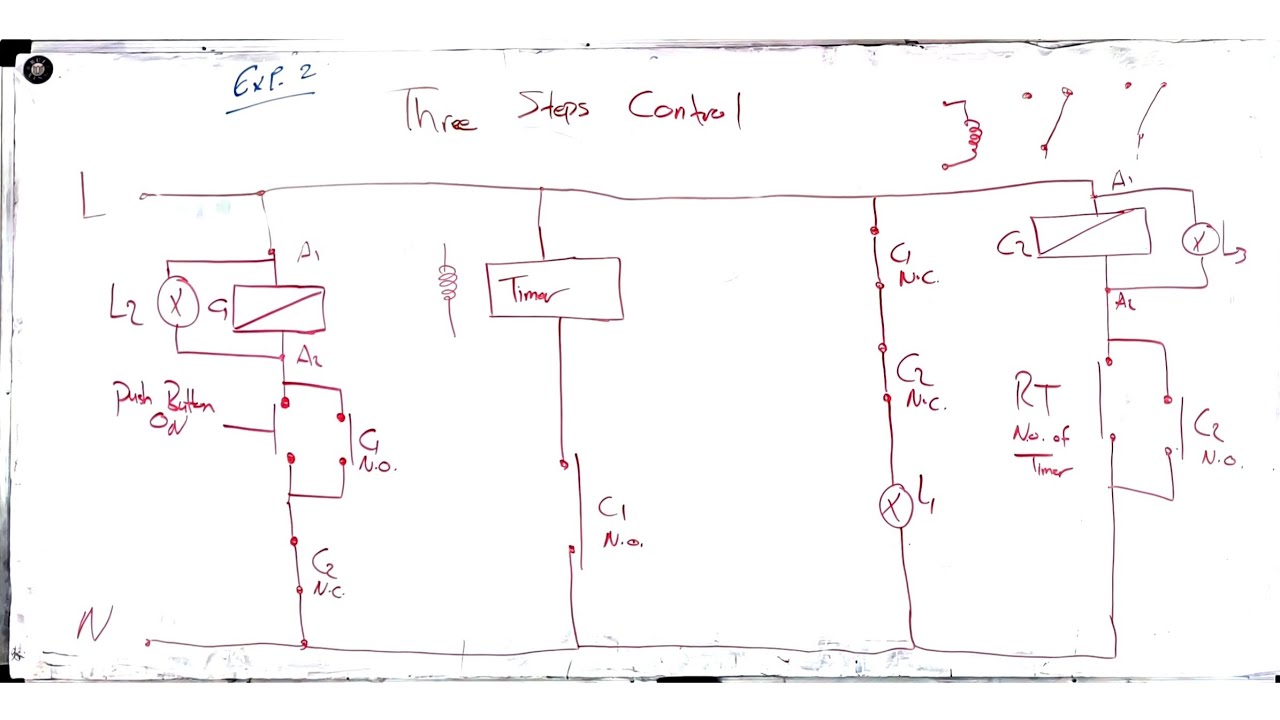 Exp. 2
Three Steps Control
L
A1
L2
C1
A2
Push Button
ON
C1
N.O.
C2
N.C.
N
Timer
C1
N.O.
C1
N.C.
C2
N.C.
L1
A1
C2
L3
A2
RT
N.O. of
Timer
C2
N.O.